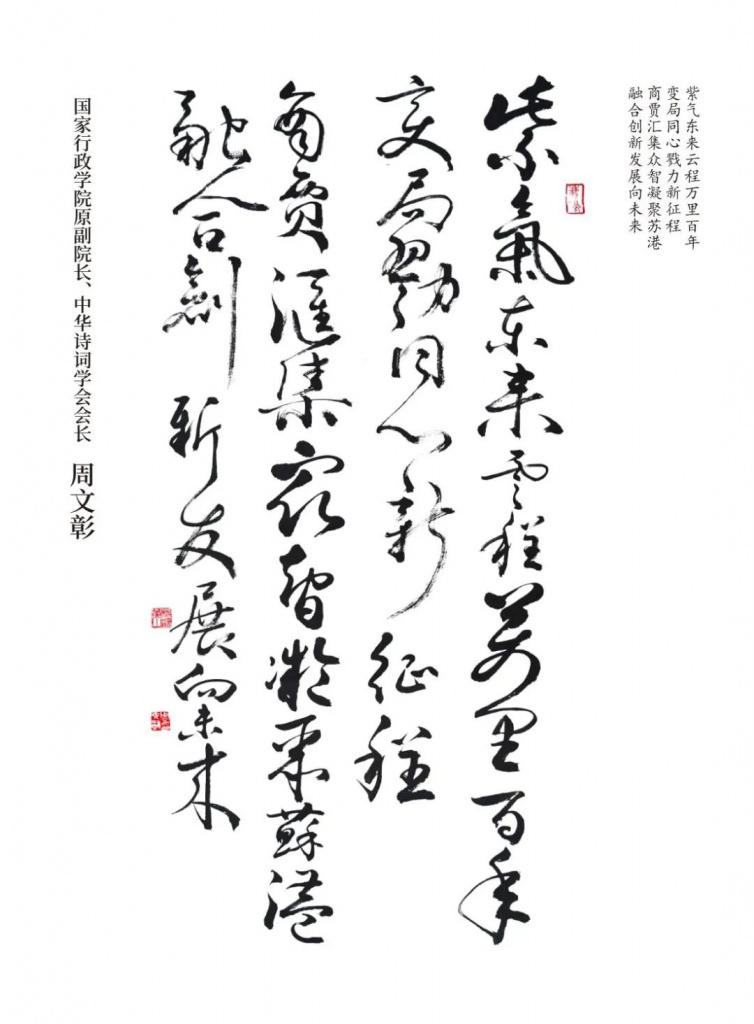 紫气东来云程万里百年
变局同心戮力新征程
商贾汇集众智凝聚苏港
融合创新发展向未来
紫氣东来云程万里百年
变局勠同心新征程
商贾滙集众智凝聚蘇港
融合创新发展向未来
国家行政学院原副院长、中华诗词学会会长 周文彰